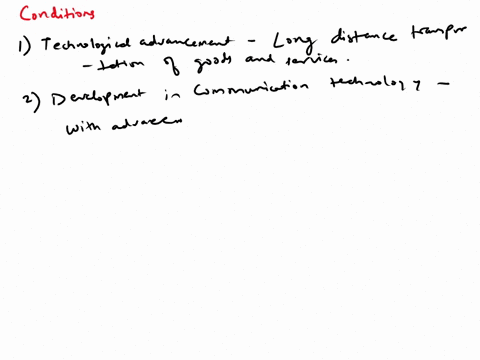 Conditions
1) Technological advancement - Long distance transpor
- tation of goods and services.
2) Development in Communication technology -
with advacem